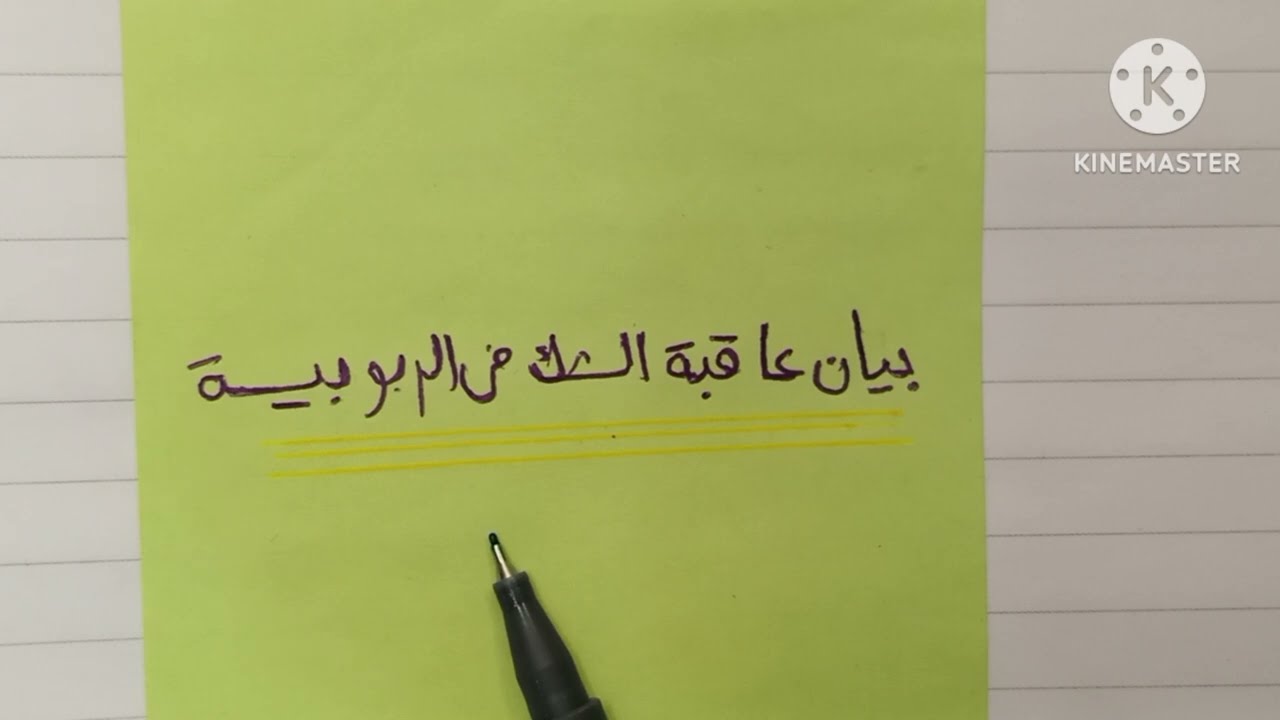 بيان عاقبة الشك في الربوبية
KINEMASTER